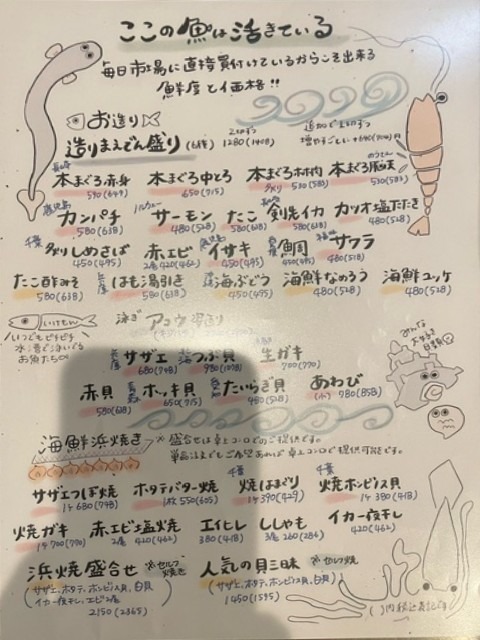 ここの魚は活きている
毎日市場に直接買付けているからこそ出来る
鮮度と価格!!
お造り
造りまえどん盛り (6種) 1280(1408)
長崎
本まぐろ赤身 本まぐろ中とろ 本まぐろ 本まぐろ脳天
590(649) 650(715) 530(583) 530(583)
鹿児島 ノルウェー
カンパチ サーモン たこ 剣先イカ カツオ塩たたき
580(638) 480(528) 580(638) 580(638) 480(528)
千葉
炙りしめさば 赤エビ イサキ 鯛 サワラ
450(495) 2尾 420(462) 450(495) 450(495) 480(528)
たこ酢みそ はも湯引き 海ぶどう 海鮮なめろう 海鮮ユッケ
580(638) 580(638) 450(495) 480(528) 480(528)
いけもん
いつでもピチピチ
水槽で泳いでる
お魚たち
泳ぎ アコウ 姿造り
みんな
大好き
貝類
サザエ つぶ貝 生ガキ
680(748) 980(1078) 700(770)
赤貝 ホッキ貝 たいらぎ貝 あわび
580(638) 650(715) 480(528) (小) 780(858)
海鮮浜焼き ※盛合せは卓上コンロでのご提供です。
単品注文でもご希望あれば卓上コンロで提供可能です。
千葉 千葉
サザエつぼ焼 ホタテバター焼 焼はまぐり 焼ホンビノス貝
1ヶ 680(748) 1枚 550(605) 1ヶ 390(429) 1ヶ 380(418)
焼ガキ 赤エビ塩焼 エイヒレ ししゃも イカ一夜干し
1ヶ 700(770) 2尾 420(462) 380(418) 3尾 260(286) 420(462)
浜焼盛合せ ※セルフ焼き 人気の貝三昧 ※セルフ焼
(サザエ、ホタテ、ホンビノス貝、白貝 (サザエ、ホタテ、ホンビノス貝、白貝)
イカ一夜干し、エビ2尾) 1450(1595)
2150(2365)
( )内税込表記です